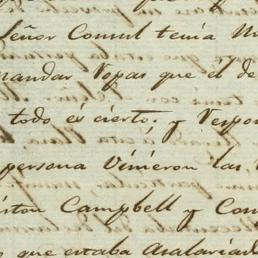 Señor Consul tenia
mandar Vopas que el de
todo és cierto: y Respon
persona viniéron las
Campbell y Con
que estaba Asalariad